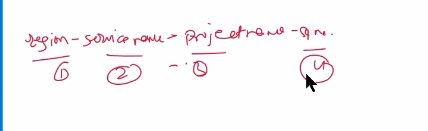 region - service name - project name - env.
① ② -- ③ ④